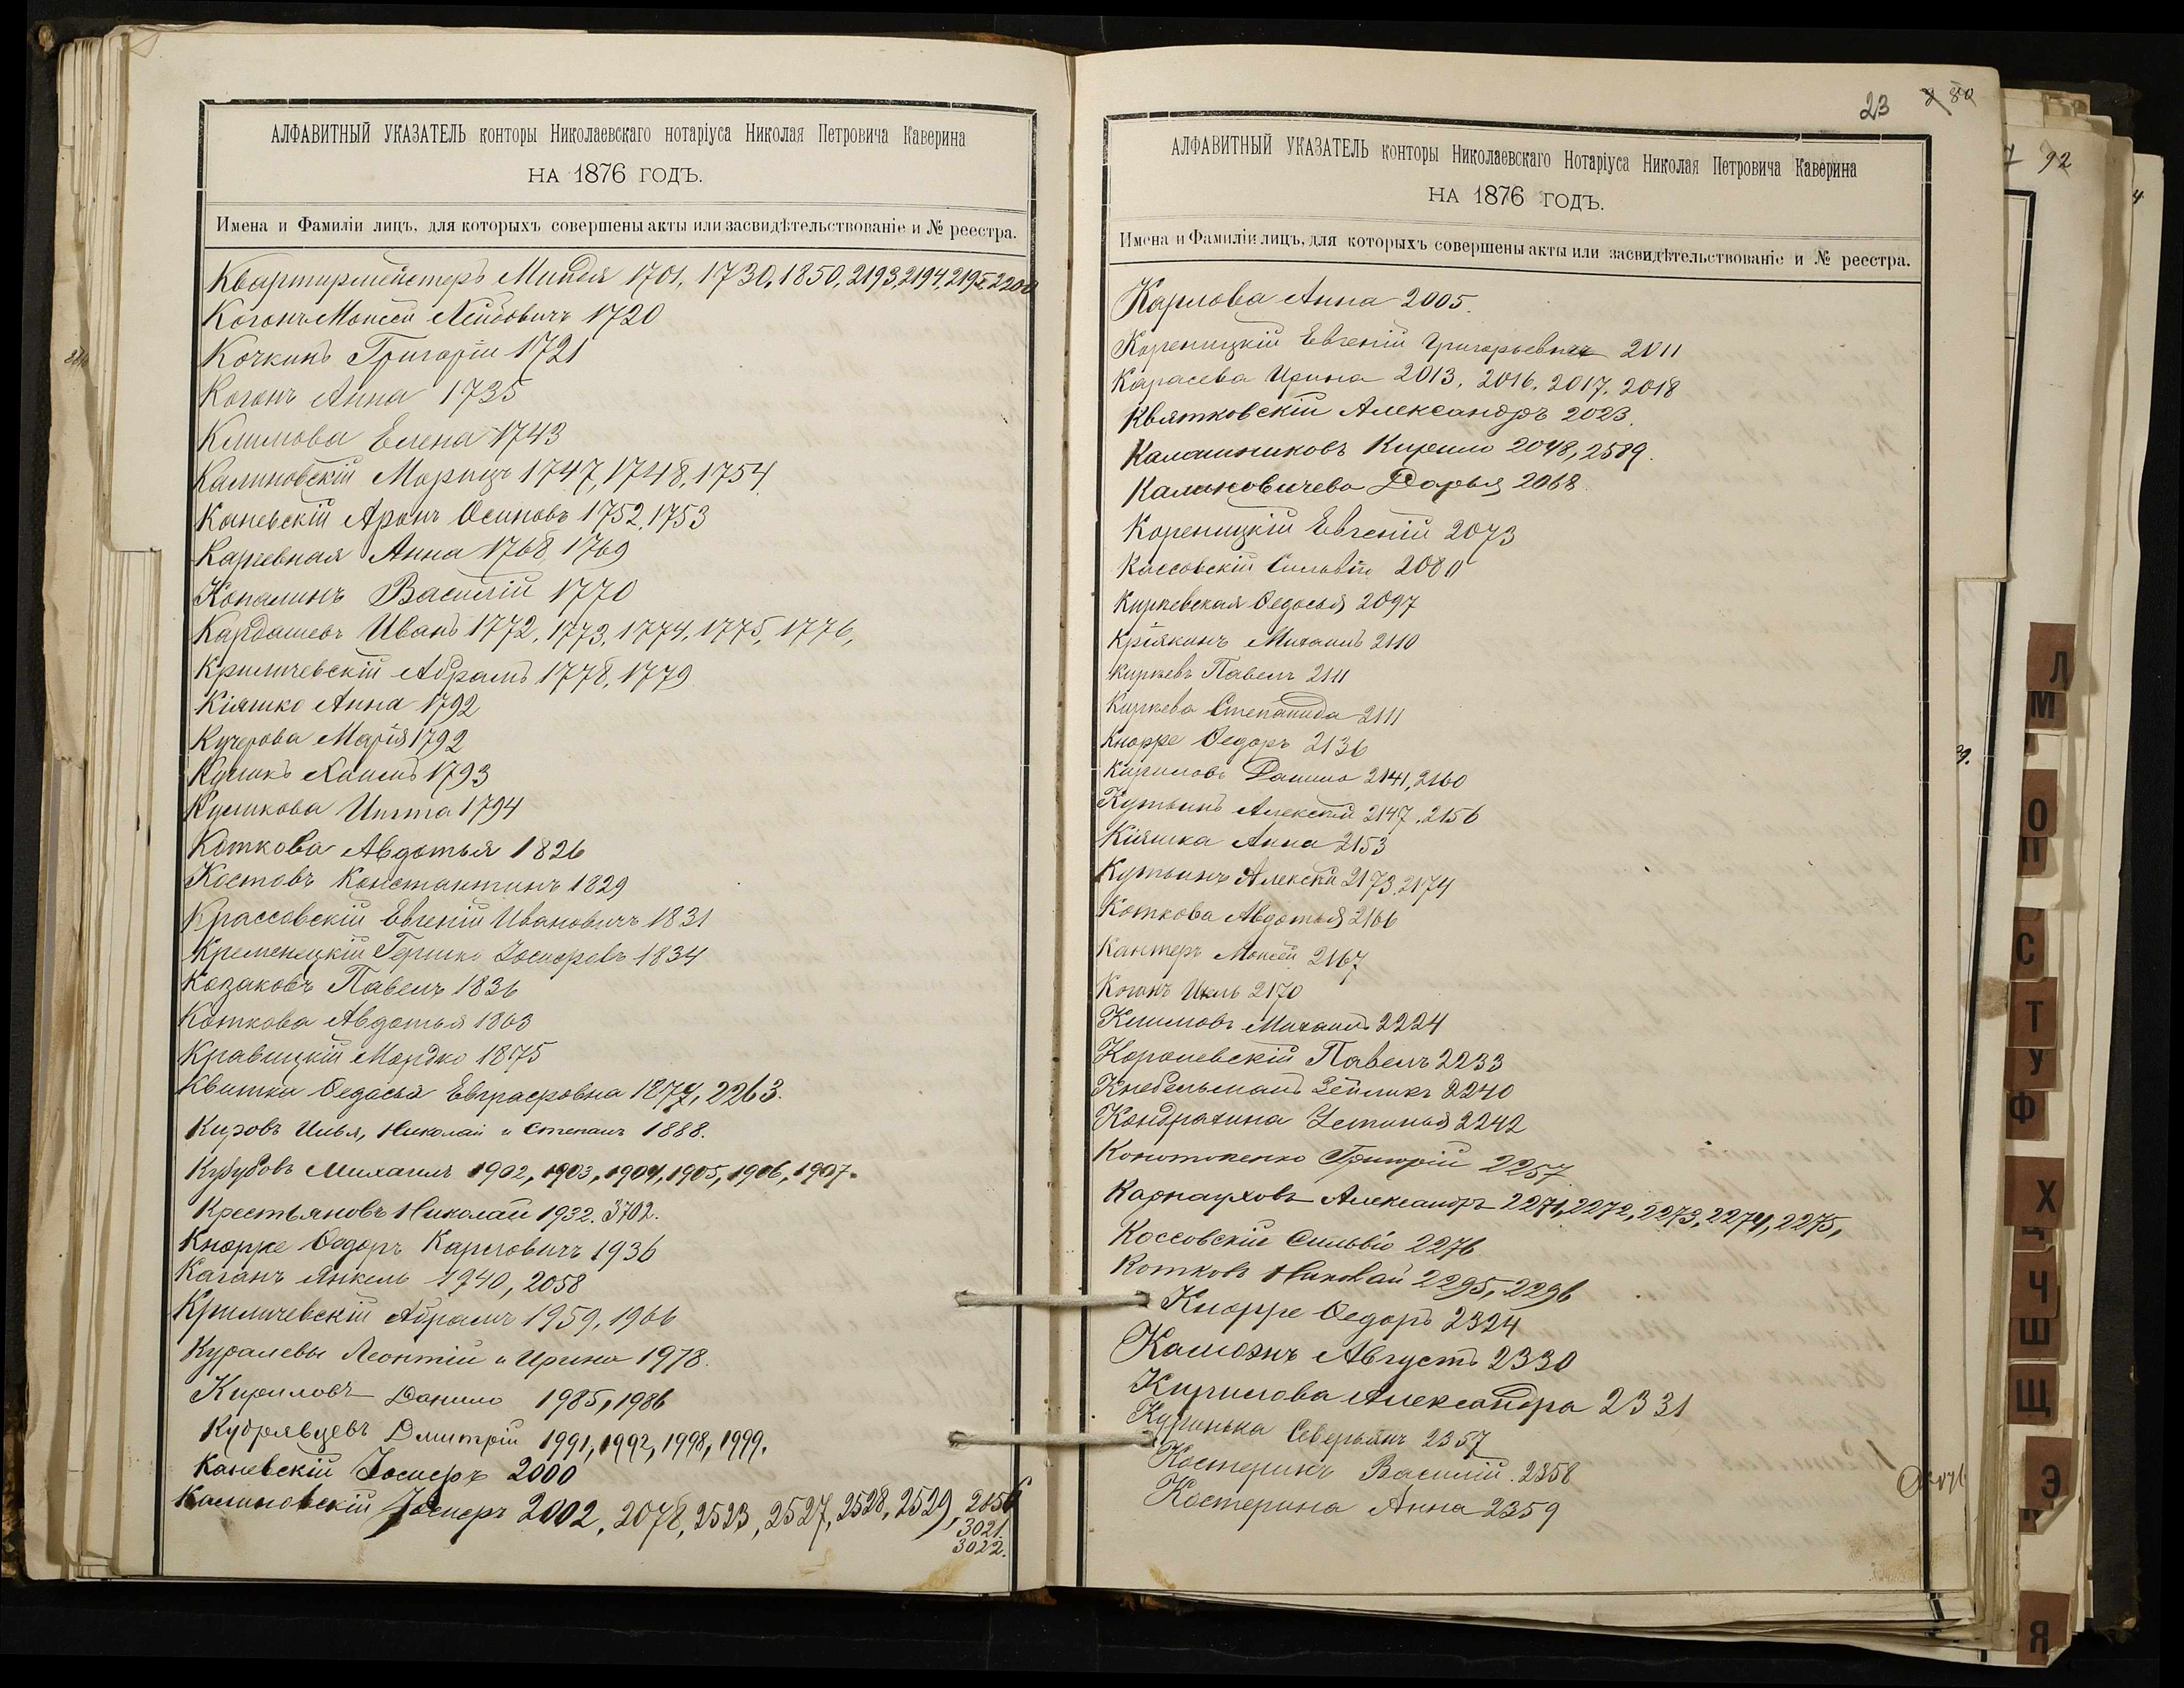 АЛФАВИТНЫЙ УКАЗАТЕЛЬ конторы Николаевскаго нотаріуса Николая Петровича Каверина
НА 1876 ГОДЪ.
Имена и Фамиліи лицъ, для которыхъ совершены акты или засвидѣтельствованіе и № реестра.
Квартирмейстеръ Миндля 1701, 1730, 1850, 2193, 2194, 2195, 2200
Когонъ Моисей Лейбовичъ 1720
Кочкинъ Григорій 1721
Когонъ Анна 1735
Климова Елена 1743
Калиновскій Морицъ 1747, 1748, 1754
Каневскій Аронъ Осиповъ 1752, 1753
Анна 1768, 1769
Копалинъ Василій 1770
Кардашевъ Иванъ 1772, 1773, 1774, 1775, 1776,
Криличевскій Абрамъ 1778, 1779
Кіяшко Анна 1792
Кучерова Марія 1792
Куликъ Хаимъ 1793
Куликова 1794
Коткова Авдотья 1826
Костовъ Константинъ 1829
Крассовскій Евгеній Ивановичъ 1831
Кременецкій Гершко Іосифовъ 1834
Козаковъ Павелъ 1836
Коткова Авдотья 1863
Кравицкій Мордко 1875
Квитка Ѳедосья Евграфовна 1877, 2263.
Кизовъ Илья, Николай и Степанъ 1888.
Михаилъ 1902, 1903, 1904, 1905, 1906, 1907.
Крестьяновъ Николай 1932. 3702.
Кнорре Ѳедоръ Карловичъ 1936
Каганъ Янкель 1940, 2058
Криличевскій Абрамъ 1959, 1966
Куралевы Леонтій и Ирина 1978.
Кириловъ Данило 1985, 1986
Кудрявцевъ Дмитрій 1991, 1992, 1998, 1999.
Каневскій Іосифъ 2000
Калиновскій Іосифъ 2002, 2078, 2523, 2527, 2528, 2529, 2656
3021.
3022.
23 80
АЛФАВИТНЫЙ УКАЗАТЕЛЬ конторы Николаевскаго Нотаріуса Николая Петровича Каверина
НА 1876 ГОДЪ.
Имена и Фамиліи лицъ, для которыхъ совершены акты или засвидѣтельствованіе и № реестра.
Карлова Анна 2005.
Кореницкій Евгеній Григорьевичъ 2011
Карасева Ирина 2013, 2016, 2017, 2018
Квятковскій Александръ 2023.
Калашниковъ Кирило 2048, 2589.
Калиновичева Дарья 2068
Кореницкій Евгеній 2073
Кассовскій Сильвіо 2080
Киркевская Ѳедосья 2097
Крїякинъ Михаилъ 2110
Киркевъ Павелъ 2111
Киркева Степанида 2111
Кнорре Ѳедоръ 2136
Кириловъ Данило 2141, 2160
Кутьинъ Алексѣй 2147, 2156
Кіяшка Анна 2153
Кутьинъ Алексѣй 2173, 2174
Коткова Авдотья 2166
Кантеръ Моисей 2167
Когонъ 2170
Климовъ Михаилъ 2224
Королевскій Павелъ 2233
Кнебельманъ Зейликъ 2240
Кондрахина Устинья 2242
Конотопенко Григорій 2257
Карнауховъ Александръ 2271, 2272, 2273, 2274, 2275,
Коссовскій Сильвіо 2276
Котковъ Николай 2295, 2296
Кнорре Ѳедоръ 2324
Августъ 2330
Кирилова Александра 2331
Куринька Северьянъ 2357
Костеринъ Василій 2358
Костерина Анна 2359
92
Л
М
О
П
С
Т
У
Ф
Х
Ц
Ч
Ш
Щ
Э
Я